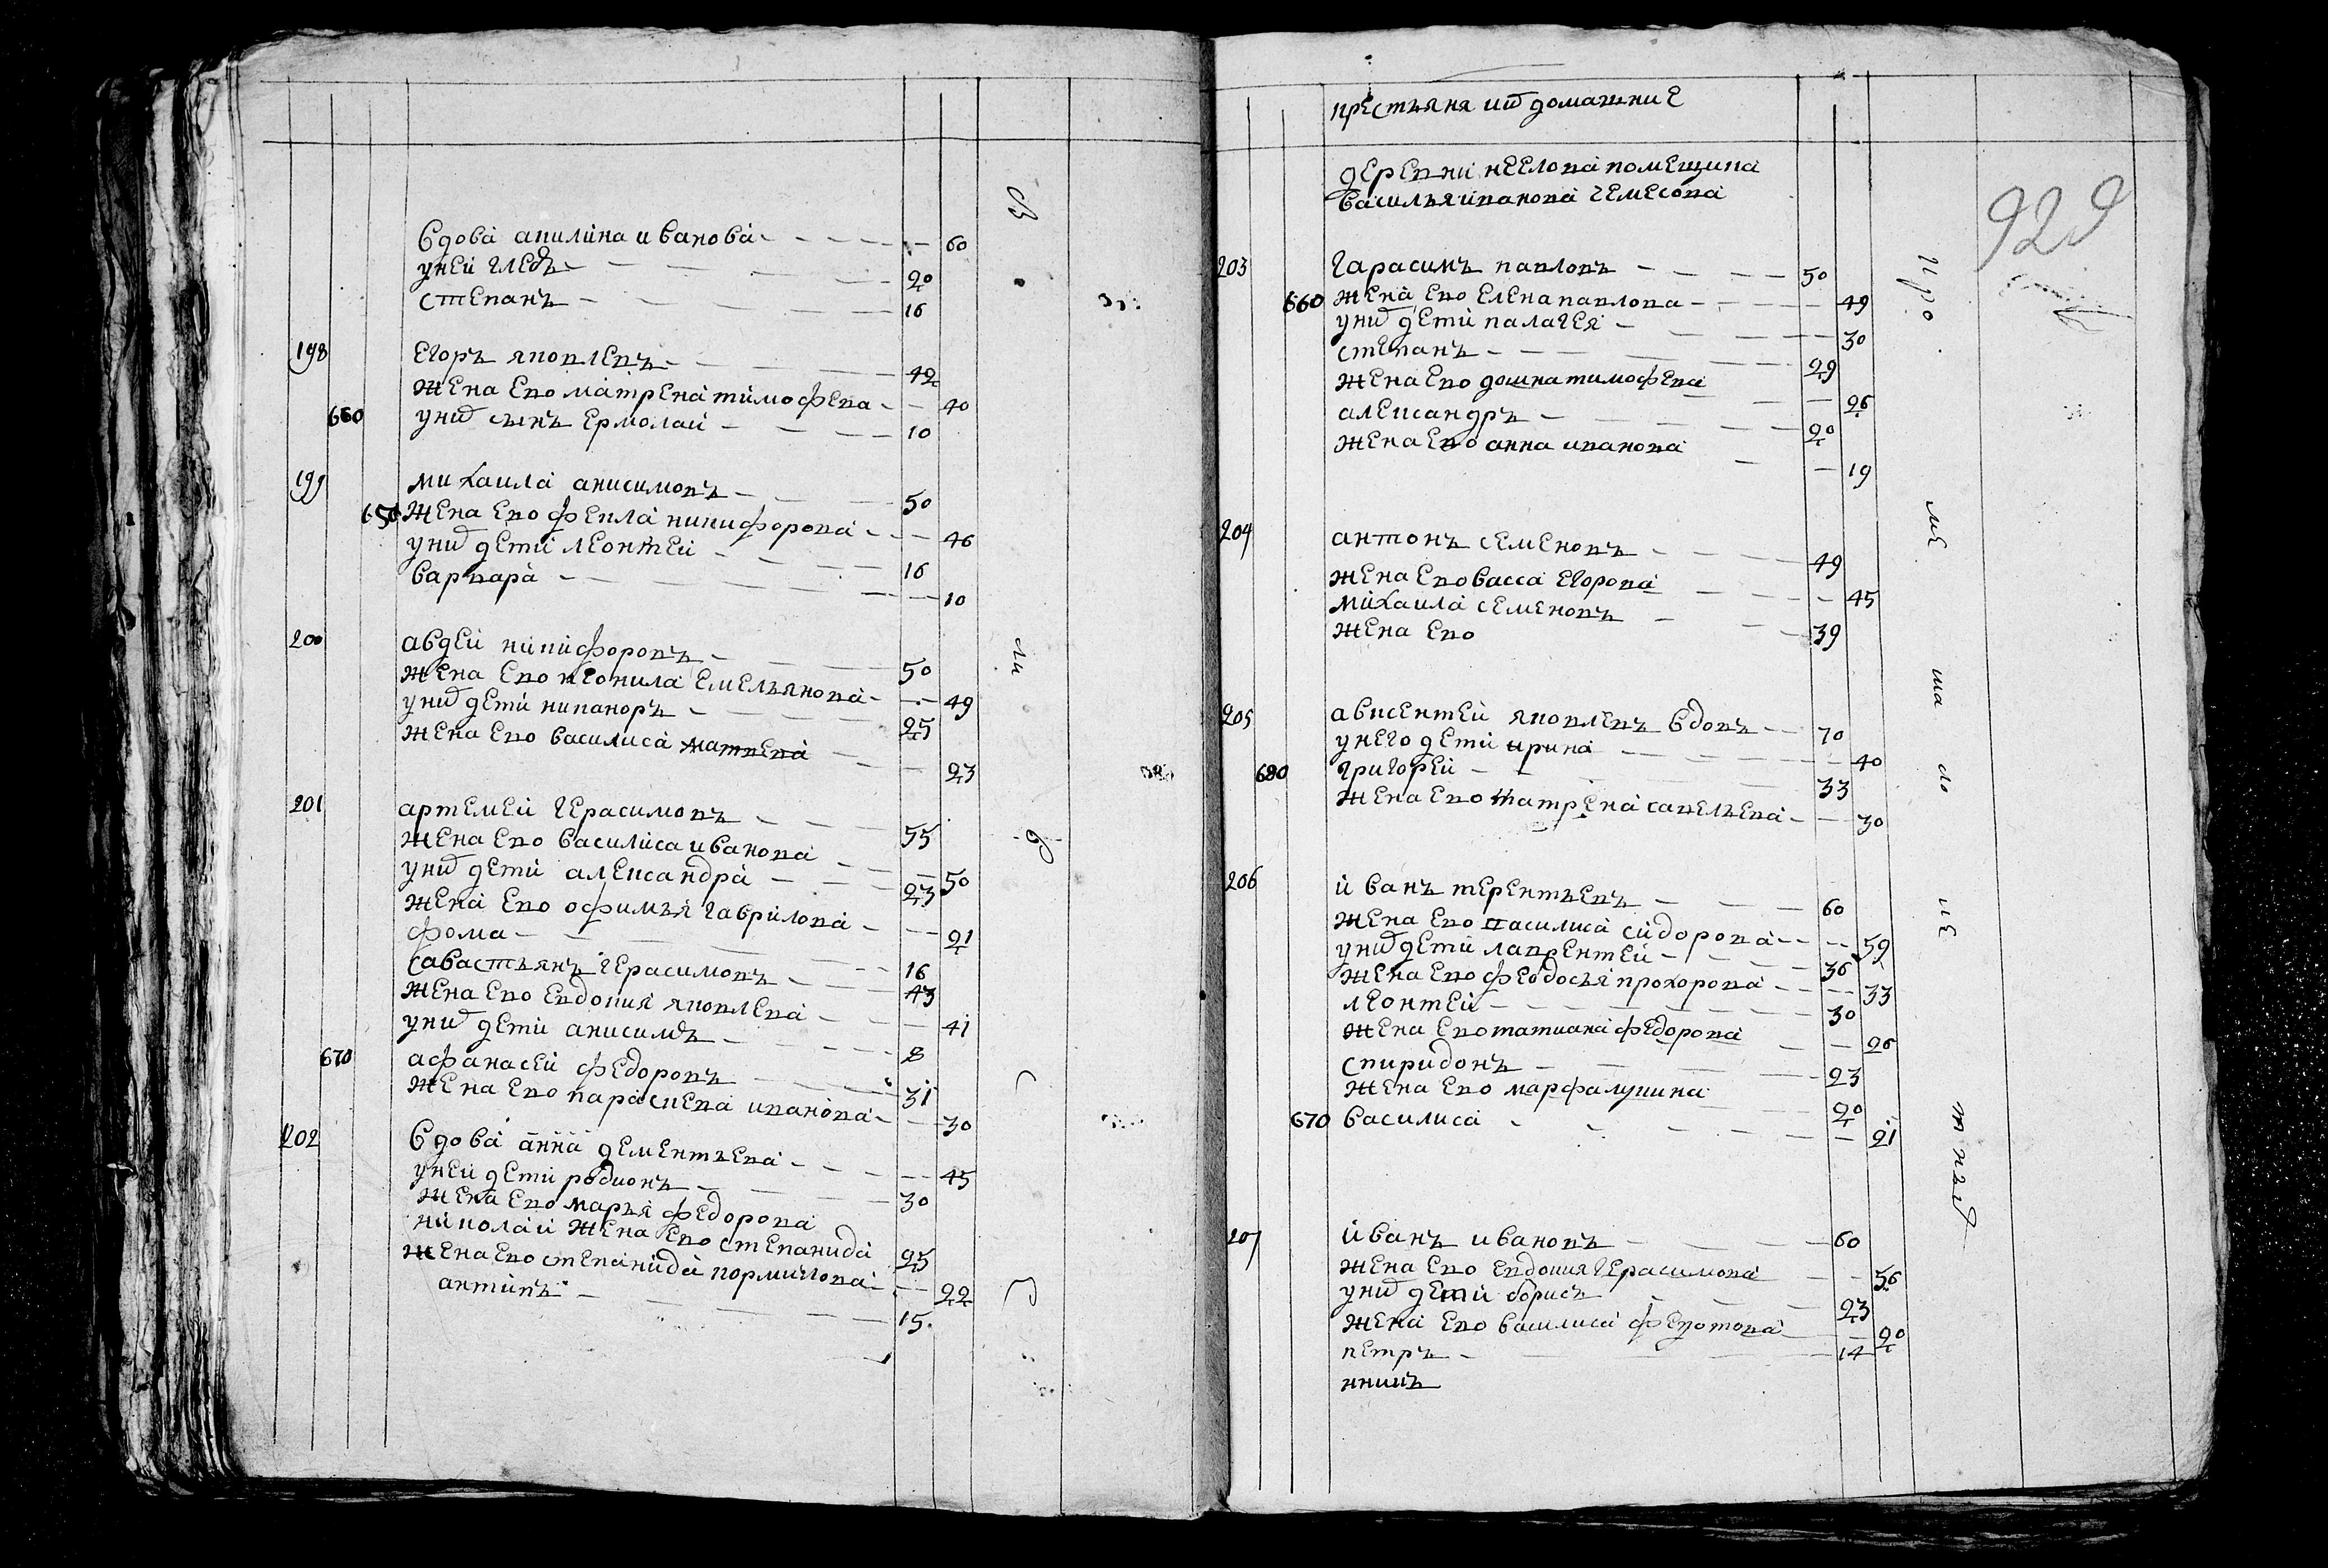 вдова акилина иванова 60
уней глебъ 20
степанъ 16
198 егоръ яковлевъ 42
жена ево матрена тимофева 40
660 у них сынъ ермолаи 10
199 михаила анисимовъ 50
650 жена ево фекла никифорова 46
у них дети леонтеи 16
варвара 10
200 авдеи никифоровъ 50
жена ево неонила емельянова 49
у них дети никаноръ 25
жена ево василиса матвева 23
201 артемеи герасимовъ 55
жена ево василиса иванова 50
у них дети александра 23
жена ево офимья гаврилова 21
фома 16
савастьянъ герасимовъ 43
жена ево евдокия яковлева 41
у них дети анисимъ 8
670 афанасеи федоровъ 31
жена ево параскева иванова 30
202 вдова анна дементьева 45
уней дети родионъ 30
жена ево марья федорова
николаи жена ево степанида 25
жена ево степанида кормилова 22
антипъ 15
крестьяня и их домашние
929
деревни неелова помещика
василья иванова чемесова
203 гарасимъ павловъ 50
660 жена ево елена павлова 49
у них дети палагея 30
степанъ 29
жена ево домна тимофева 26
александръ 20
жена ево анна иванова 19
204 антонъ семеновъ 49
жена ево васса егорова 45
михаила семеновъ 39
жена ево
205 авксентеи яковлевъ вдовъ 70
унего дети ирина 40
680 григореи 33
жена ево матрена савельева 30
206 иванъ терентьевъ 60
жена ево василиса сидорова 59
у них дети лаврентеи 36
жена ево федосья прохорова 33
леонтеи 30
жена ево татиана федорова 26
спиридонъ 23
жена ево марфа лукина 20
670 василиса 21
207 иванъ ивановъ 60
жена ево евдокия герасимова 56
у них дети борисъ 23
жена ево василиса федотова 20
петръ 14